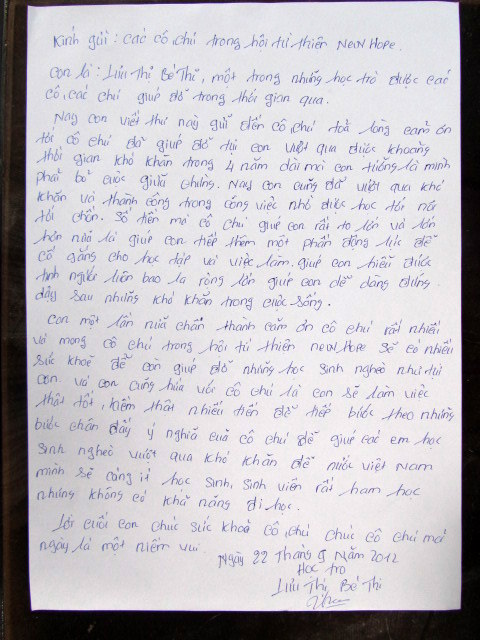 Kính gửi : Các cô, chú trong hội từ thiện New Hope.
Con là : Lưu Thị Bé Thi, một trong những học trò được các
cô, các chú giúp đỡ trong thời gian qua.
Nay con viết thư này gửi đến cô, chú toả lòng cảm ơn
tới cô chú đã giúp đỡ tụi con vượt qua được khoảng
thời gian khó khăn trong 4 năm dài mà con tưởng là mình
phải bỏ cuộc giữa chừng. Nay con cũng đã vượt qua khó
khăn và thành công trong công việc nhờ được học tới nơi
tới chốn. Số tiền mà cô chú giúp con rất to lớn và lớn
hơn nữa là giúp con tiếp thêm một phần động lực để
cố gắng cho học tập và việc làm. giúp con hiểu được
tình người luôn bao la rộng lớn giúp con dễ dàng đứng
dậy sau những khó khăn trong cuộc sống.
Con một lần nữa chân thành cảm ơn cô chú rất nhiều
và mong cô chú trong hội từ thiện new Hope sẽ có nhiều
sức khoẻ để còn giúp đỡ những học sinh nghèo như tụi
con. và con cũng hứa với cô chú là con sẽ làm việc
thật tốt, kiếm thật nhiều tiền để tiếp bước theo những
bước chân đầy ý nghĩa của cô chú để giúp các em học
sinh nghèo vượt qua khó khăn để nước việt Nam
mình sẽ càng ít học sinh, sinh viên rất ham học
nhưng không có khả năng đi học.
Lời cuối con chúc sức khoẻ cô, chú chúc cô chú mỗi
ngày là một niềm vui.
Ngày 22 Tháng Năm 2012
Học trò
Lưu Thị Bé Thi